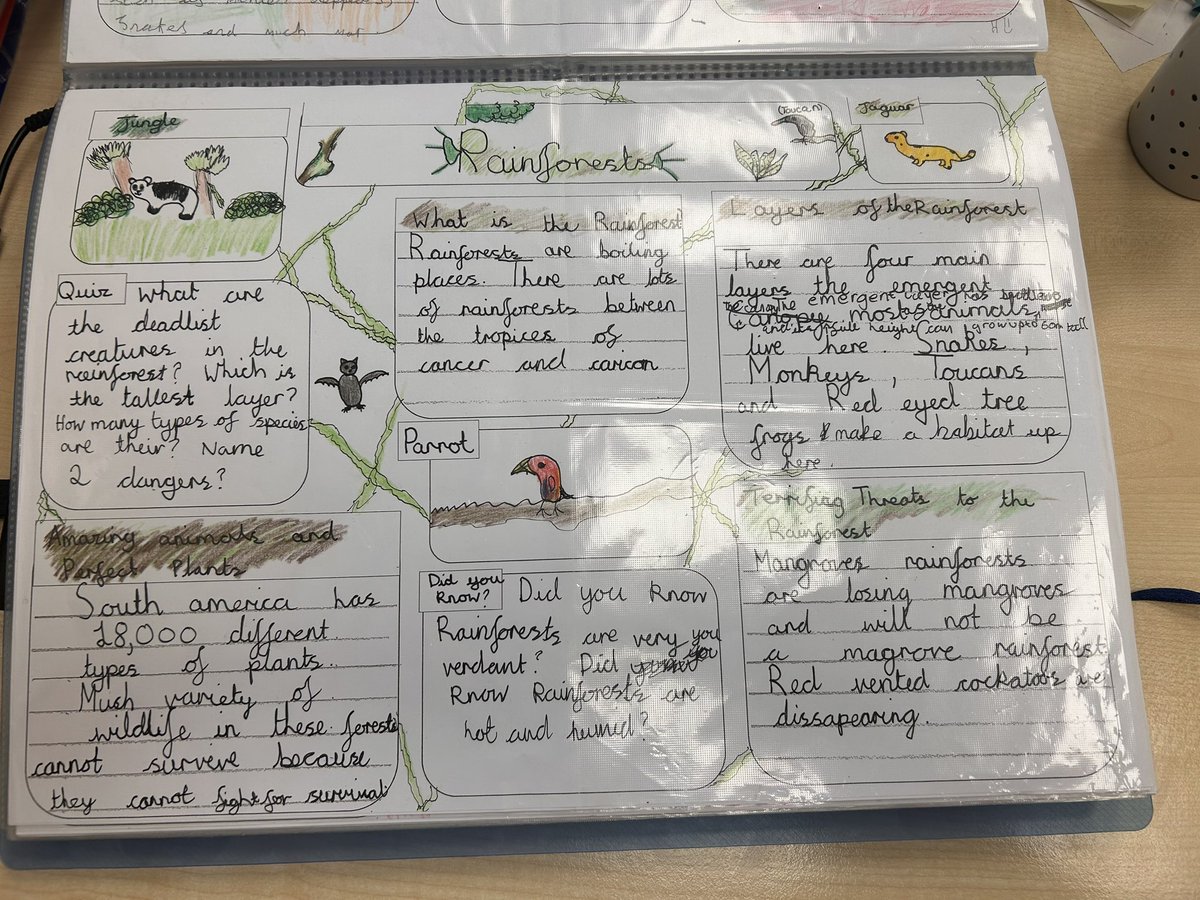 Snakes and much mor
Jungle
Rainforests
(Toucan)
Jaguar
Quiz What are
the deadlist
creatures in the
rainforest? Which is
the tallest layer?
How many types of species
are their? Name
2 dangers?
Amazing animals and
Perfect Plants
South america has
18,000 different
types of plants.
Much variety of
wildlife in these forests
cannot surveve because
they cannot fight for survival
What is the Rainforest
Rainforests are boiling
places. There are lots
of rainforests between
the tropices of
cancer and caricon
Parrot
Did you
Know? Did you Know
Rainforests are very
verdant? Did you
Know Rainforests are
hot and humid?
Layers of the Rainforest
There are four main
layers the emergent
The emergent layer has
Canopy mosts animals,
height can grow up to 50m tall
live here. Snakes,
Monkeys, Toucans
and Red eyed tree
frogs make a habitat up
here.
Terrifing Threats to the
Rainforest
Mangroves rainforests
are losing mangroves
and will not be
a magrove rainforest
Red vented cockatoos are
dissapearing.